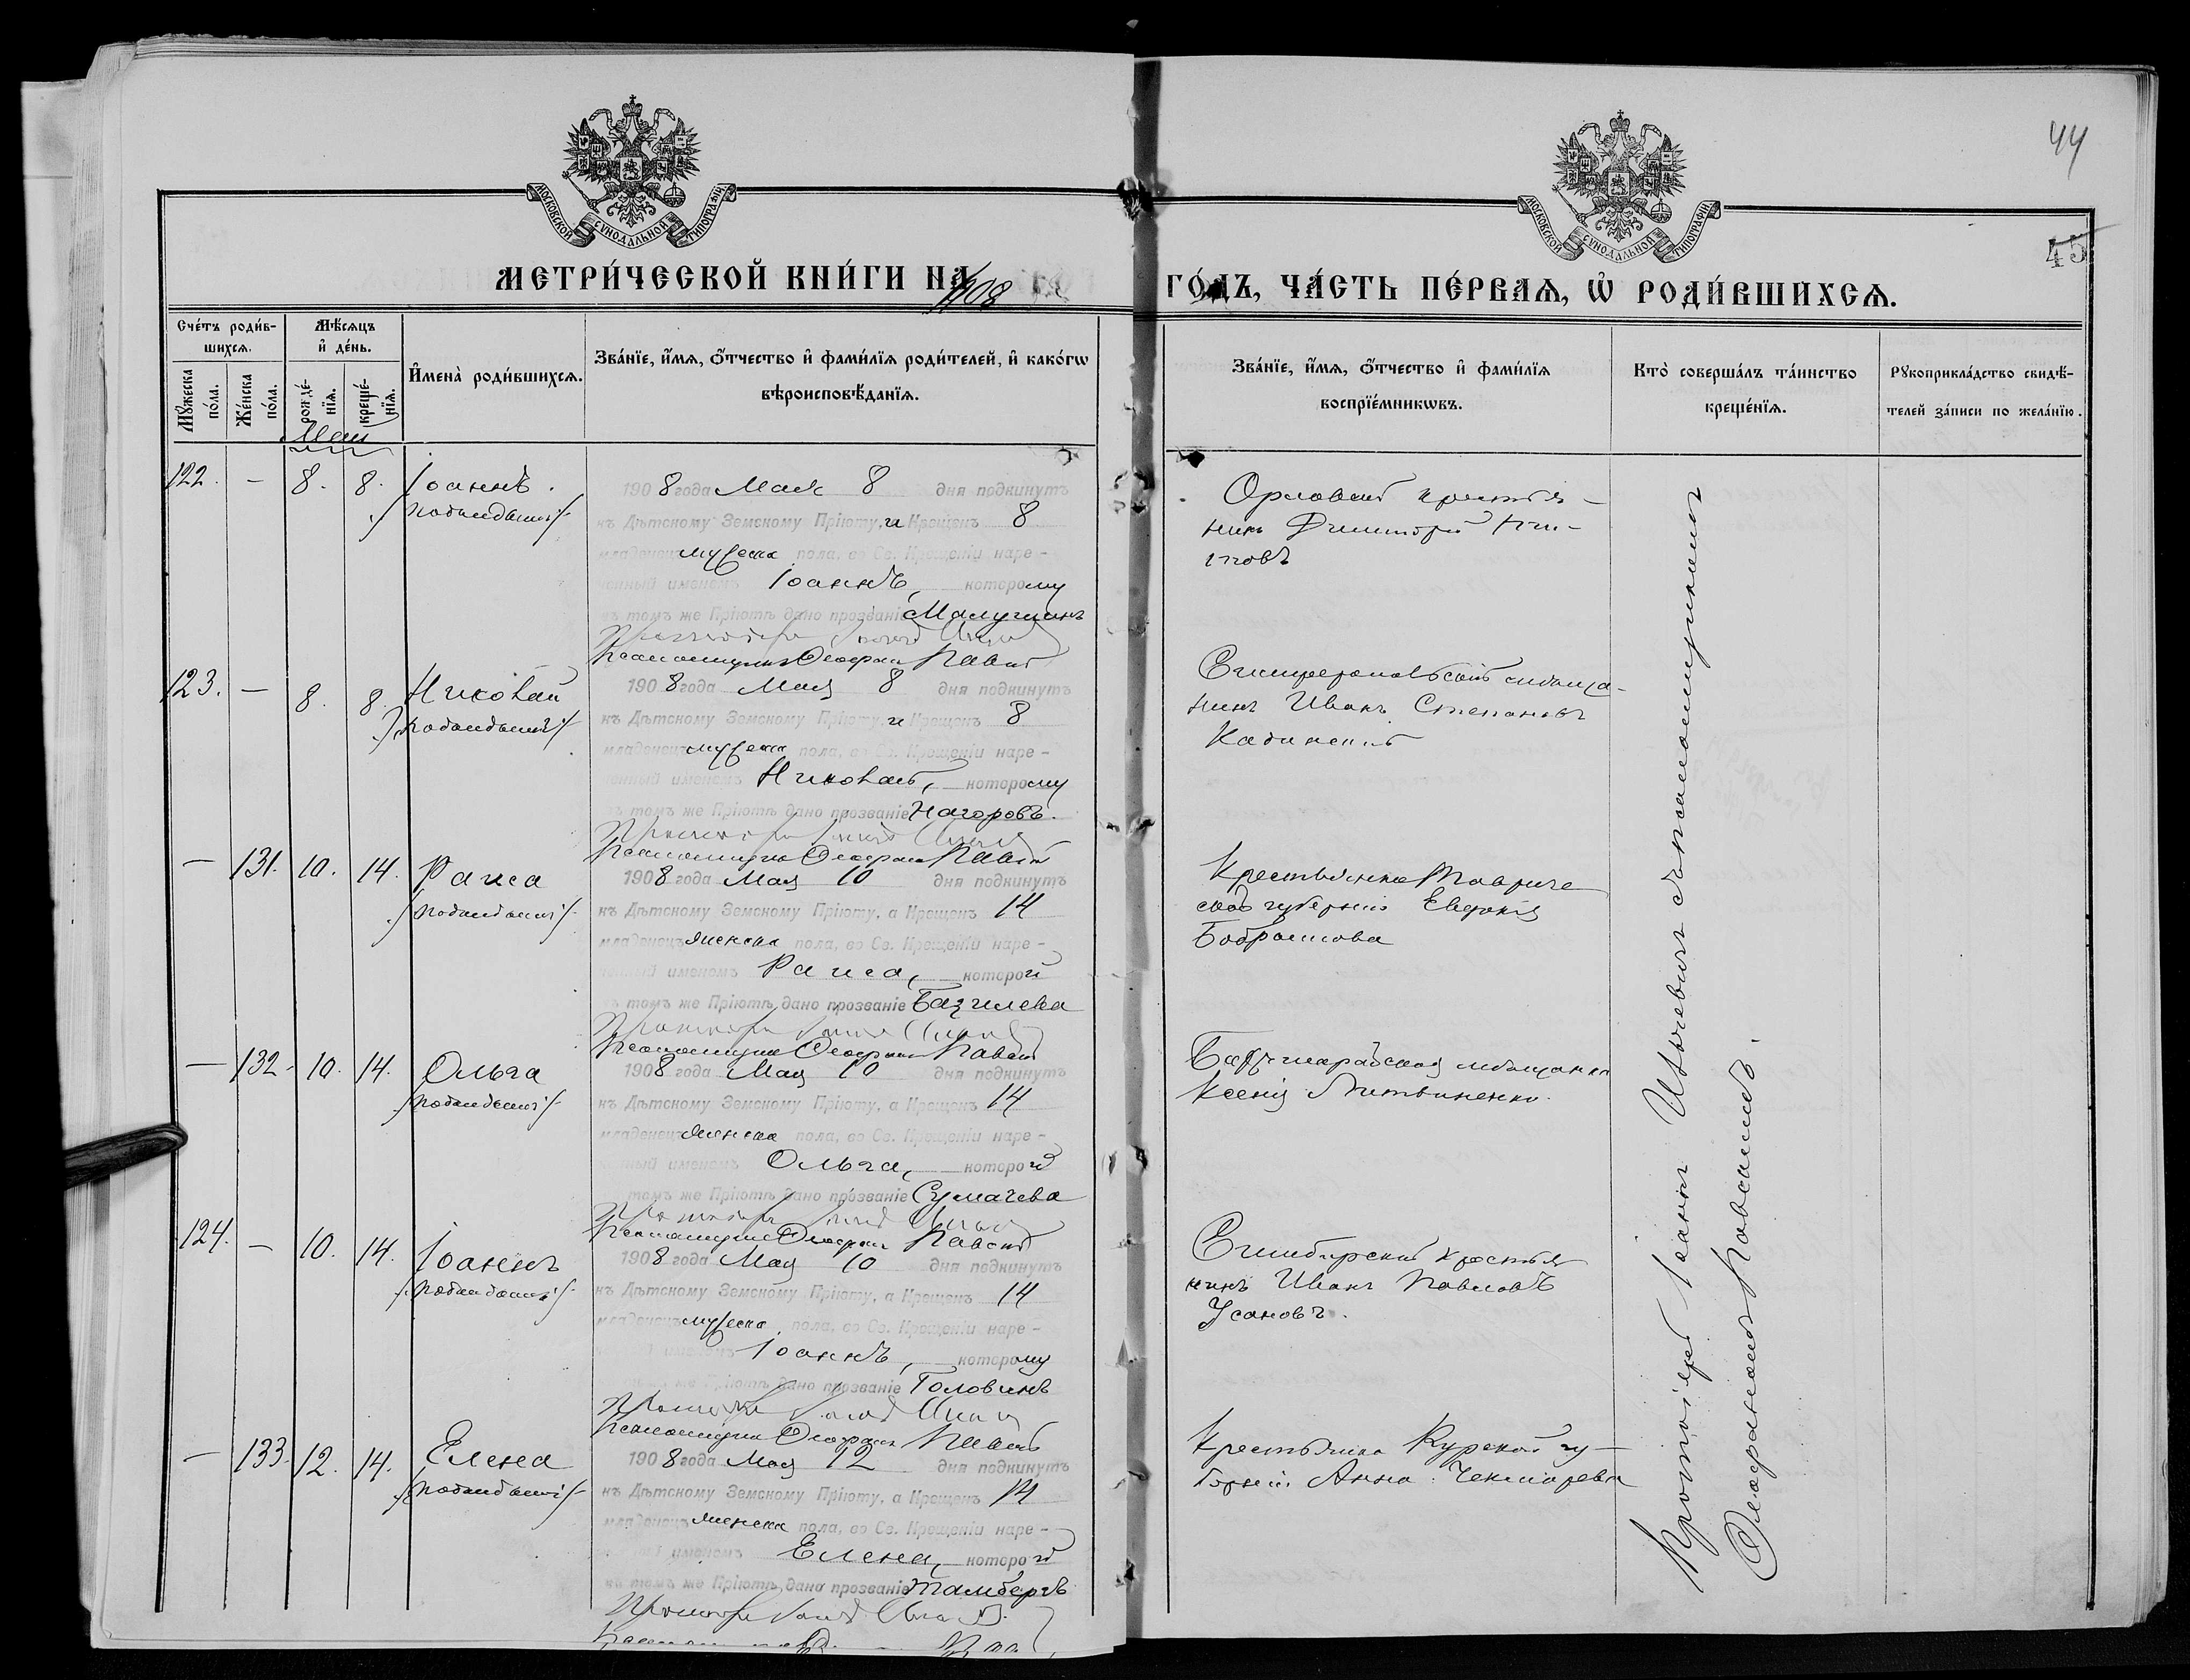 44
45
МОСКОВСКОЙ СУНОДАЛЬНОЙ ТИПОГРАФІИ
МОСКОВСКОЙ СУНОДАЛЬНОЙ ТИПОГРАФІИ
МЕТРИ́ЧЕСКОЙ КНИ́ГИ НА 1908 ГО́ДЪ, ЧА́СТЬ ПЕ́РВАѦ, Ѡ҆ РОДИ́ВШИХСѦ.
Сче́тъ роди́в-
шихсѧ.
Мꙋ́жеска по́ла.
Же́нска по́ла.
Мѣ́сѧцъ
и҆ де́нь.
рожде́-
нїѧ.
креще́-
нїѧ.
И҆мена̀ роди́вшихсѧ.
Зва́нїе, и҆́мѧ, ѻ҆́тчество и҆ фами́лїѧ роди́телей, и҆ како́гѡ
вѣроисповѣ́данїѧ.
Зва́нїе, и҆́мѧ, ѻ҆́тчество и҆ фами́лїѧ
воспрїе́мникѡвъ.
Кто̀ соверша́лъ та́инство
креще́нїѧ.
Рꙋкоприкла́дство свидѣ́-
телей за́писи по жела́нїю.
Май
122. — 8. 8. Іоаннъ.
1908 года Мая 8 дня подкинутъ
къ Дѣтскому Земскому Пріюту, и Крещен 8
младенец мужеска пола, во Св. Крещеніи наре-
ченный именемъ Іоаннъ, которому
въ томъ же Пріютѣ дано прозваніе
Псаломщикъ Павскій
Орловскій крестья-
нинъ Димитрій
123. — 8. 8. Николай
1908 года Мая 8 дня подкинутъ
къ Дѣтскому Земскому Пріюту, и Крещен 8
младенец мужеска пола, во Св. Крещеніи наре-
ченный именемъ Николай, которому
въ томъ же Пріютѣ дано прозваніе Нагоровъ.
Псаломщикъ Павскій
Симферопольскій мѣща-
нинъ Иванъ Степановъ
— 131. 10. 14. Раиса
1908 года Мая 10 дня подкинутъ
къ Дѣтскому Земскому Пріюту, а Крещен 14
младенец женска пола, во Св. Крещеніи наре-
ченный именемъ Раиса, которой
въ томъ же Пріютѣ дано прозваніе Базилева
Псаломщикъ Павскій
Крестьянка Тавриче
ской губерніи Евдокія
— 132. 10. 14. Ольга
1908 года Мая 10 дня подкинутъ
къ Дѣтскому Земскому Пріюту, а Крещен 14
младенец женска пола, во Св. Крещеніи наре-
ченный именемъ Ольга, которой
въ томъ же Пріютѣ дано прозваніе Сумачева
Псаломщикъ Павскій
мѣщанка
Ксенія Литвиненко.
124. — 10. 14. Іоаннъ
1908 года Мая 10 дня подкинутъ
къ Дѣтскому Земскому Пріюту, а Крещен 14
младенец мужеска пола, во Св. Крещеніи наре-
ченный именемъ Іоаннъ, которому
въ томъ же Пріютѣ дано прозваніе Головинъ
Псаломщикъ Павскій
Симбирскій крестья
нинъ Иванъ Павловъ
Усановъ.
— 133. 12. 14. Елена
1908 года Мая 12 дня подкинутъ
къ Дѣтскому Земскому Пріюту, а Крещен 14
младенец женска пола, во Св. Крещеніи наре-
ченный именемъ Елена, которой
въ томъ же Пріютѣ дано прозваніе Тамбергъ
Крестьянка Курской гу-
берніи Анна Чекмарева
Протоіерей Іоаннъ съ псаломщикомъ
Павскимъ.